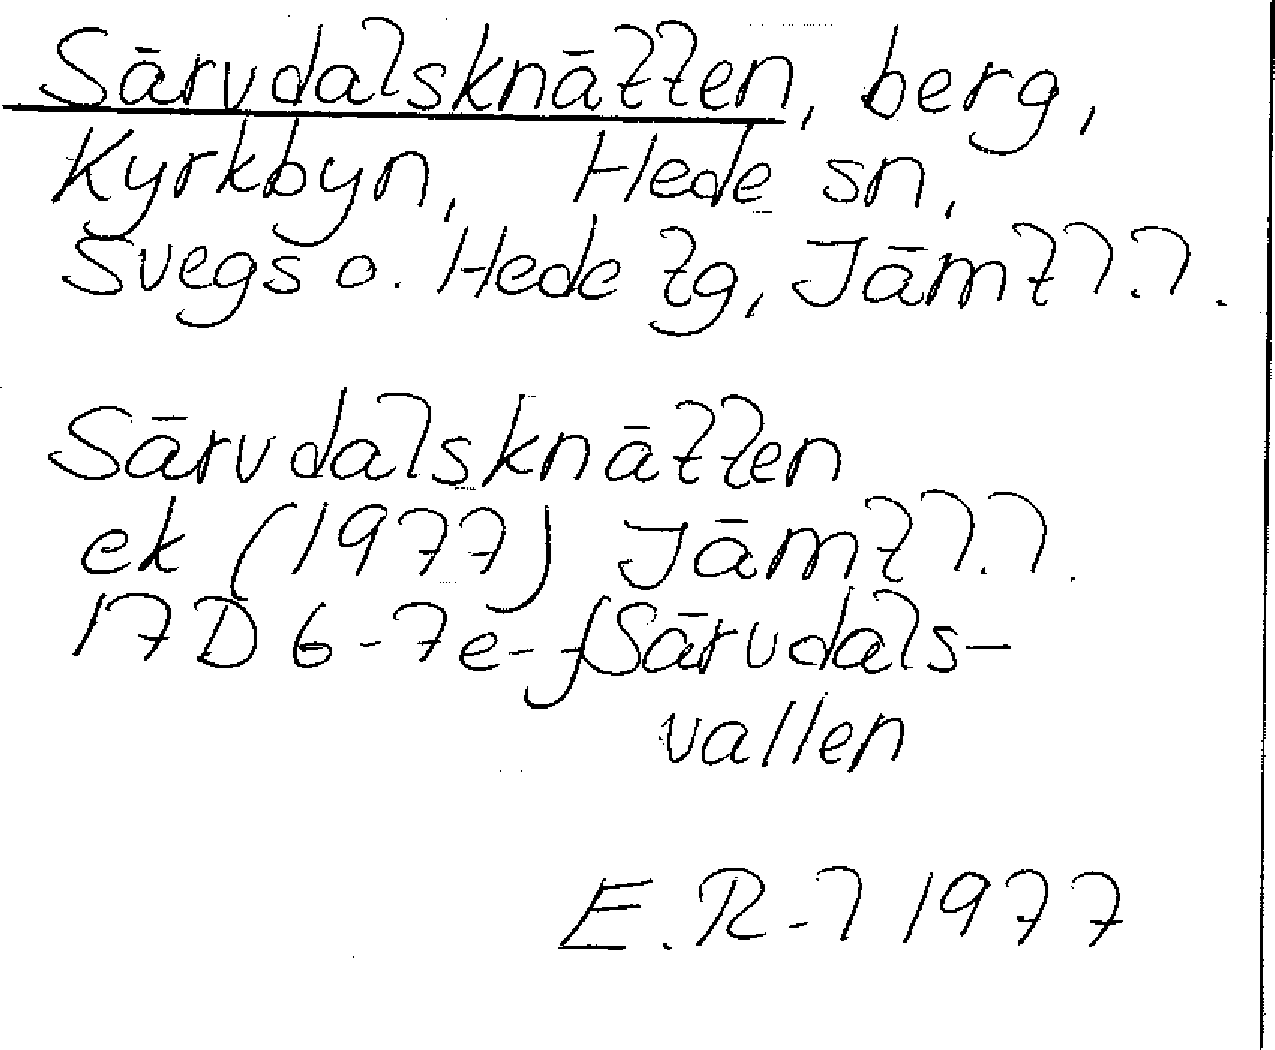 Särvdalsknätten, berg,
Kyrkbyn, Hede sn,
Svegs o. Hede tg, Jämtl.l.
Särvdalsknätten
ek (1977) Jämtl.l.
17D 6-7e-f Särvdals-
vallen
E.R-l 1977